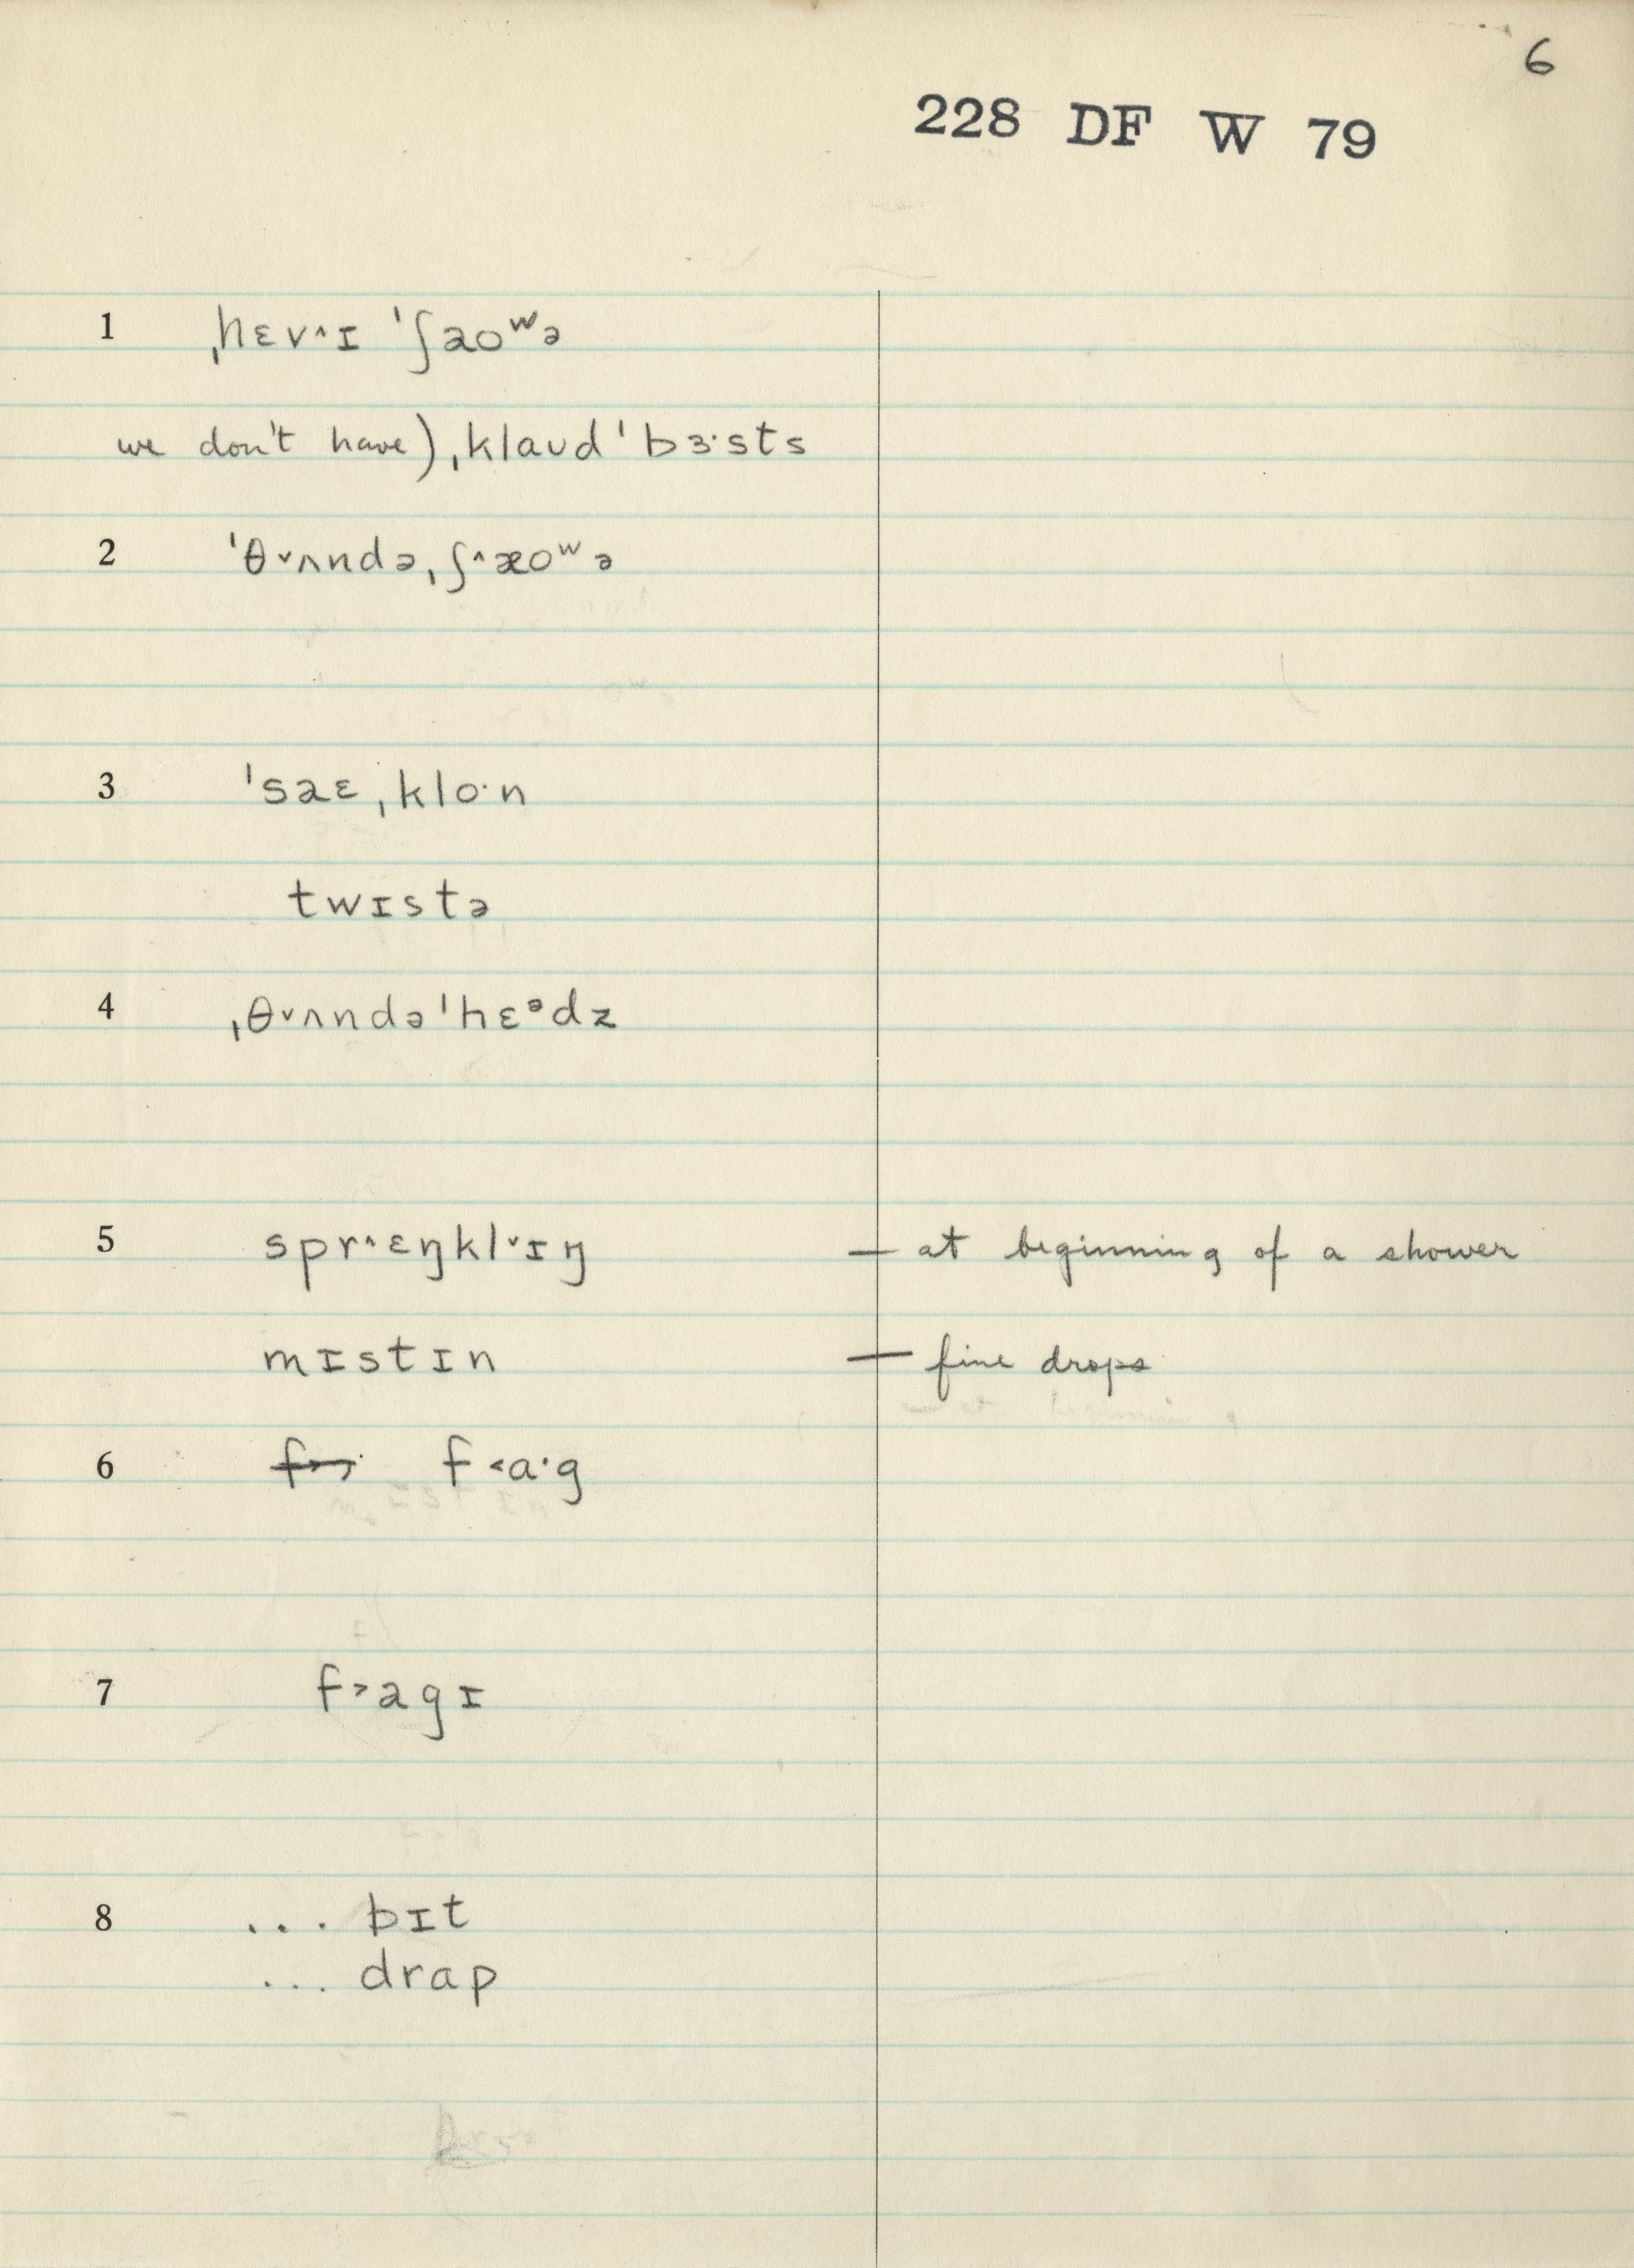 6
228 DF W 79
1 ˌhɛv˄ɪ ˈʃaoʷə
we don't have) ˌklaʊdˈbɜ·sts
2 ˈθ˅ʌndəˌʃ˄æoʷə
3 ˈsaɛˌklo·n
twɪstə
4 ˌθ˅ʌndəˈhɛᵊdz
5 spr˄ɛŋkl˅ɪŋ — at beginning of a shower
mɪstɪn — fine drops
6 f˂a·g
7 f˃agɪ
8 ... bɪt
... drap